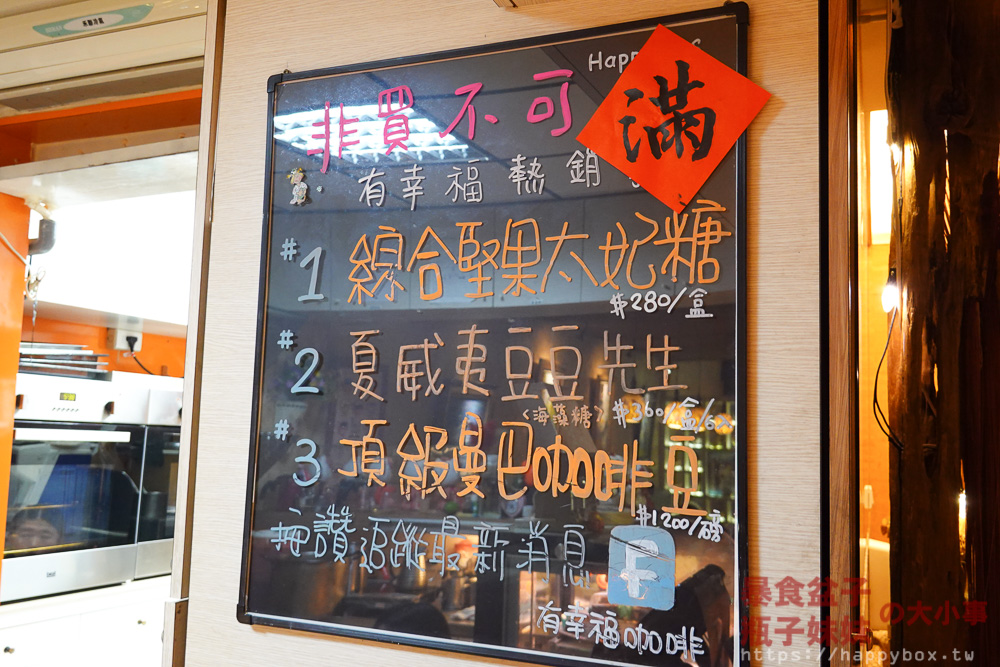 禾聯冷氣
非買不可
滿
有幸福熱銷
#1 綜合堅果太妃糖
$280/盒
#2 夏威夷豆豆先生
(海藻糖) $360/盒/
#3 頂級曼巴咖啡豆
$1200/磅
按讚追蹤最新消息
有幸福咖啡
暴食盆子
瓶子妹妹 の大小事
https://happybox.tw